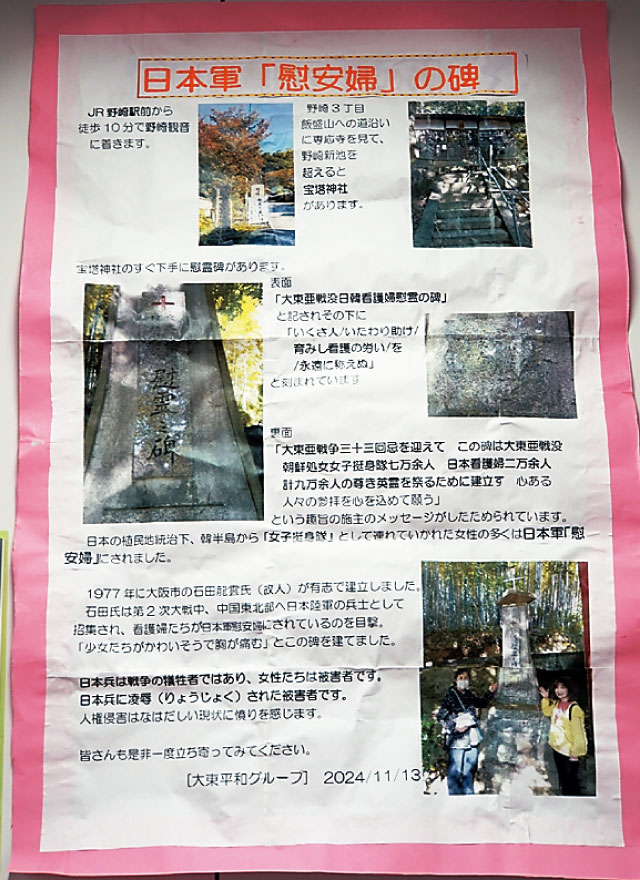 日本軍「慰安婦」の碑
JR 野崎駅前から
徒歩 10分で野崎観音
に着きます。
野崎3丁目
飯盛山への道沿い
に専応寺を見て、
野崎新池を
超えると
宝塔神社
があります。
宝塔神社のすぐ下手に慰霊碑があります。
表面
「大東亜戦没日韓看護婦慰霊の碑」
と記されその下に
「いくさ人/いたわり助け/
育みし看護の労い/を
/永遠に称えぬ」
と刻まれています
慰霊之碑
裏面
「大東亜戦争三十三回忌を迎えて この碑は大東亜戦没
朝鮮処女女子挺身隊七万余人 日本看護婦二万余人
計九万余人の尊き英霊を祭るために建立す 心ある
人々の参拝を心を込めて願う」
という趣旨の施主のメッセージがしたためられています。
日本の植民地統治下、韓半島から「女子挺身隊」として連れていかれた女性の多くは日本軍「慰
安婦」にされました。
1977年に大阪市の石田龍雲氏（故人）が有志で建立しました。
石田氏は第2次大戦中、中国東北部へ日本陸軍の兵士として
招集され、看護婦たちが日本軍慰安婦にされているのを目撃。
「少女たちがかわいそうで胸が痛む」とこの碑を建てました。
日本兵は戦争の犠牲者ではあり、女性たちは被害者です。
日本兵に凌辱（りょうじょく）された被害者です。
人権侵害はなはだしい現状に憤りを感じます。
皆さんも是非一度立ち寄ってみてください。
[大東平和グループ] 2024/11/13